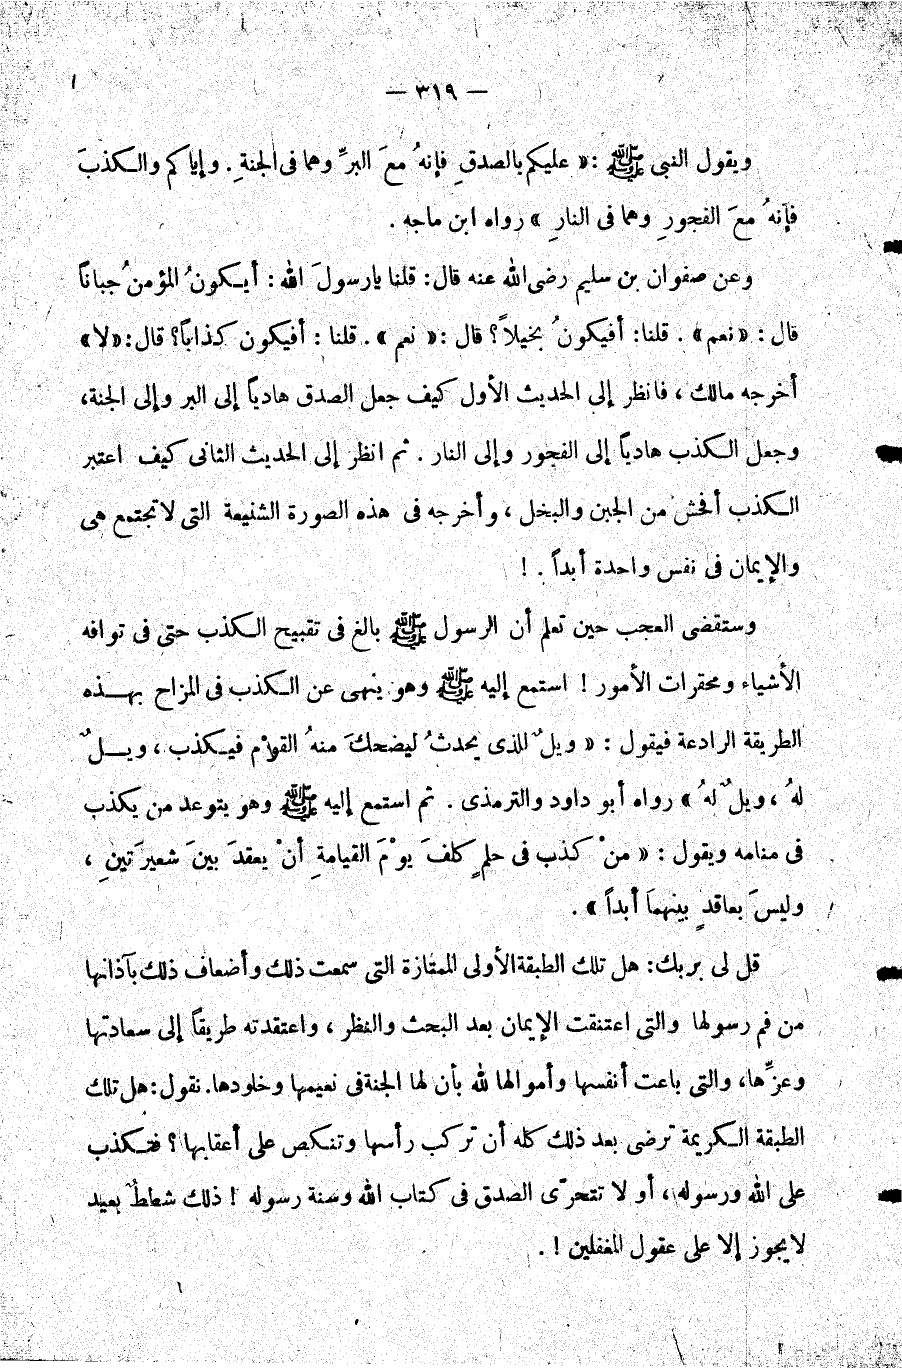 — ٣١٩ —
ويقول النبى ﷺ :« عليكم بالصدقِ فإنهُ معَ البرِّ وهما فى الجنةِ . وإياكم والكذبَ
فإنهُ معَ الفجورِ وهما فى النارِ » رواه ابن ماجه .
وعن صفوان بن سليم رضى الله عنه قال: قلنا يارسولَ الله : أيكونُ المؤمنُ جباناً
قال : «نعم» . قلنا: أفيكونُ بخيلاً؟ قال :« نعم » . قلنا : أفيكون كذاباً؟ قال:«لا»
أخرجه مالك ، فانظر إلى الحديث الأول كيف جعل الصدق هادياً إلى البر وإلى الجنة،
وجعل الكذب هادياً إلى الفجور وإلى النار . ثم انظر إلى الحديث الثانى كيف اعتبر
الكذب أفحش من الجبن والبخل ، وأخرجه فى هذه الصورة الشنيعة التى لاتجتمع هى
والإيمان فى نفس واحدة أبداً . !
وستقضى العجب حين تعلم أن الرسول ﷺ بالغ فى تقبيح الكذب حتى فى توافه
الأشياء ومحقرات الأمور ! استمع إليه ﷺ وهو ينهى عن الكذب فى المزاح بهذه
الطريقة الرادعة فيقول : « ويلٌ للذى يحدثُ ليضحكَ منهُ القوْم فيكذب ، ويلٌ
لهُ ، ويلٌ لهُ » رواه أبو داود والترمذى . ثم استمع إليه ﷺ وهو يتوعد من يكذب
فى منامه ويقول : « منْ كذب فى حلمٍ كلفَ يوْمَ القيامةِ أنْ يعقدَ بينَ شعيرَتينِ ،
وليسَ بعاقدٍ بينهماَ أبداً » .
قل لى بربك: هل تلك الطبقة الأولى الممتازة التى سمعت ذلك وأضعاف ذلك بآذانها
من فم رسولها والتى اعتنقت الإيمان بعد البحث والنظر ، واعتقدته طريقاً إلى سعادتها
وعزِّها، والتى باعت أنفسها وأموالها لله بأن لها الجنة فى نعيمها وخلودها. نقول: هل تلك
الطبقة الكريمة ترضى بعد ذلك كله أن تركب رأسها وتنكص على أعقابها ؟ فتكذب
على الله ورسوله، أو لا تتحرّى الصدق فى كتاب الله وسنة رسوله ! ذلك شططٌ بعيد
لايجوز إلا على عقول المغفلين ! .